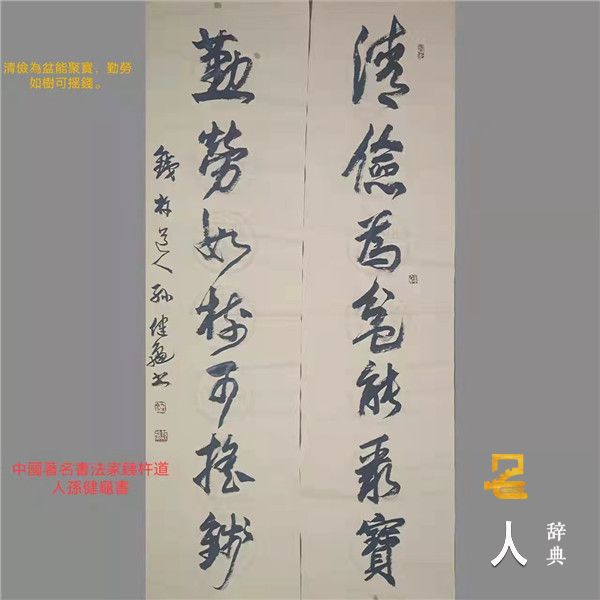 清儉為盆能聚寶，勤勞
如樹可摇錢。
清儉為盆能聚寶
勤勞如樹可搖錢
道人孫健龜書
中國著名書法家錢杵道
人孫健龜書
名
人
辞典